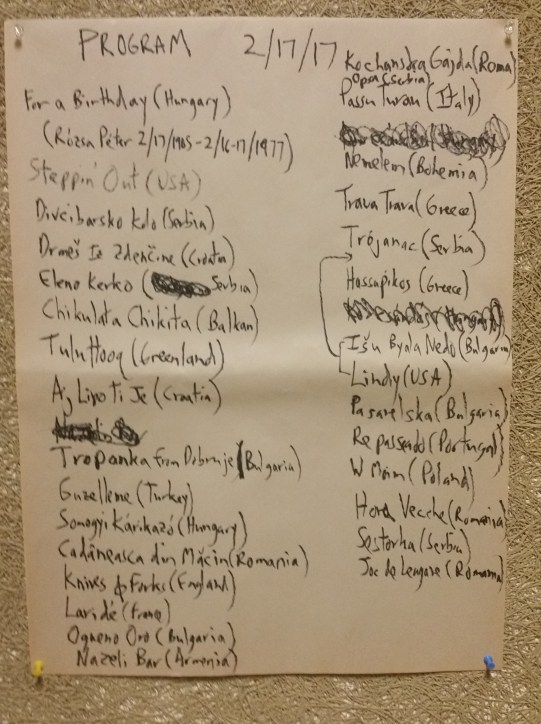 PROGRAM 2/17/17
For a Birthday (Hungary)
(Rózsa Péter 2/17/1905-2/16-17/1977)
Steppin' Out (USA)
Divčibarsko Kolo (Serbia)
Drmeš Iz Zdenčine (Croatia)
Eleno Kerko (Serbia)
Chikulata Chikita (Balkan)
TuluHooq (Greenland)
Aj Lipo Ti Je (Croatia)
Tropanka from Dobruje (Bulgaria)
Guzelleme (Turkey)
Somogyi Karikazó (Hungary)
Cadâneasca din Măcin (Romania)
Knives & Forks (England)
Laridé (France)
Ogneno Oro (Bulgaria)
Nazeli Bar (Armenia)
Kochanska Gajda (Roma)
Opas (Serbia)
Passu Turan (Italy)
Nemelem (Bohemia)
Trava Trava (Greece)
Trójanac (Serbia)
Hassapikos (Greece)
Išu Byala Nedo (Bulgaria)
Lindy (USA)
Pasarelska (Bulgaria)
Repasseado (Portugal)
W Moim (Poland)
Hora Veche (Romania)
Sestorka (Serbia)
Joc de Leagane (Romania)